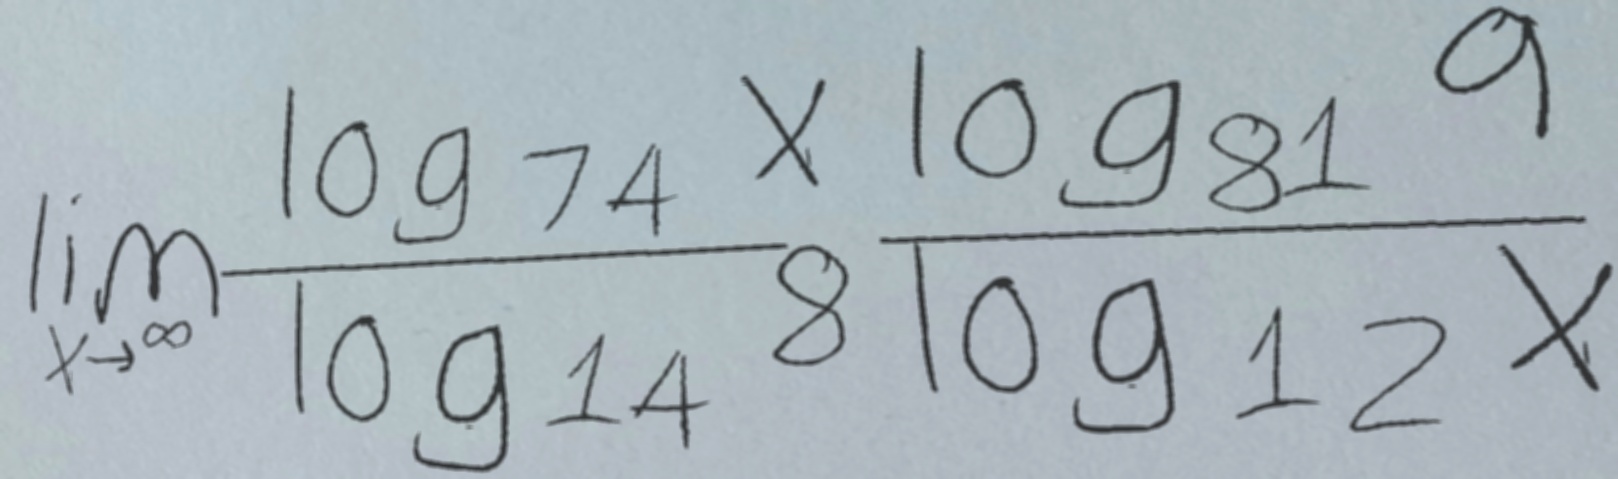 lim x→∞ log₇₄ x / log₁₄ 8 log₈₁ 9 / log₁₂ x